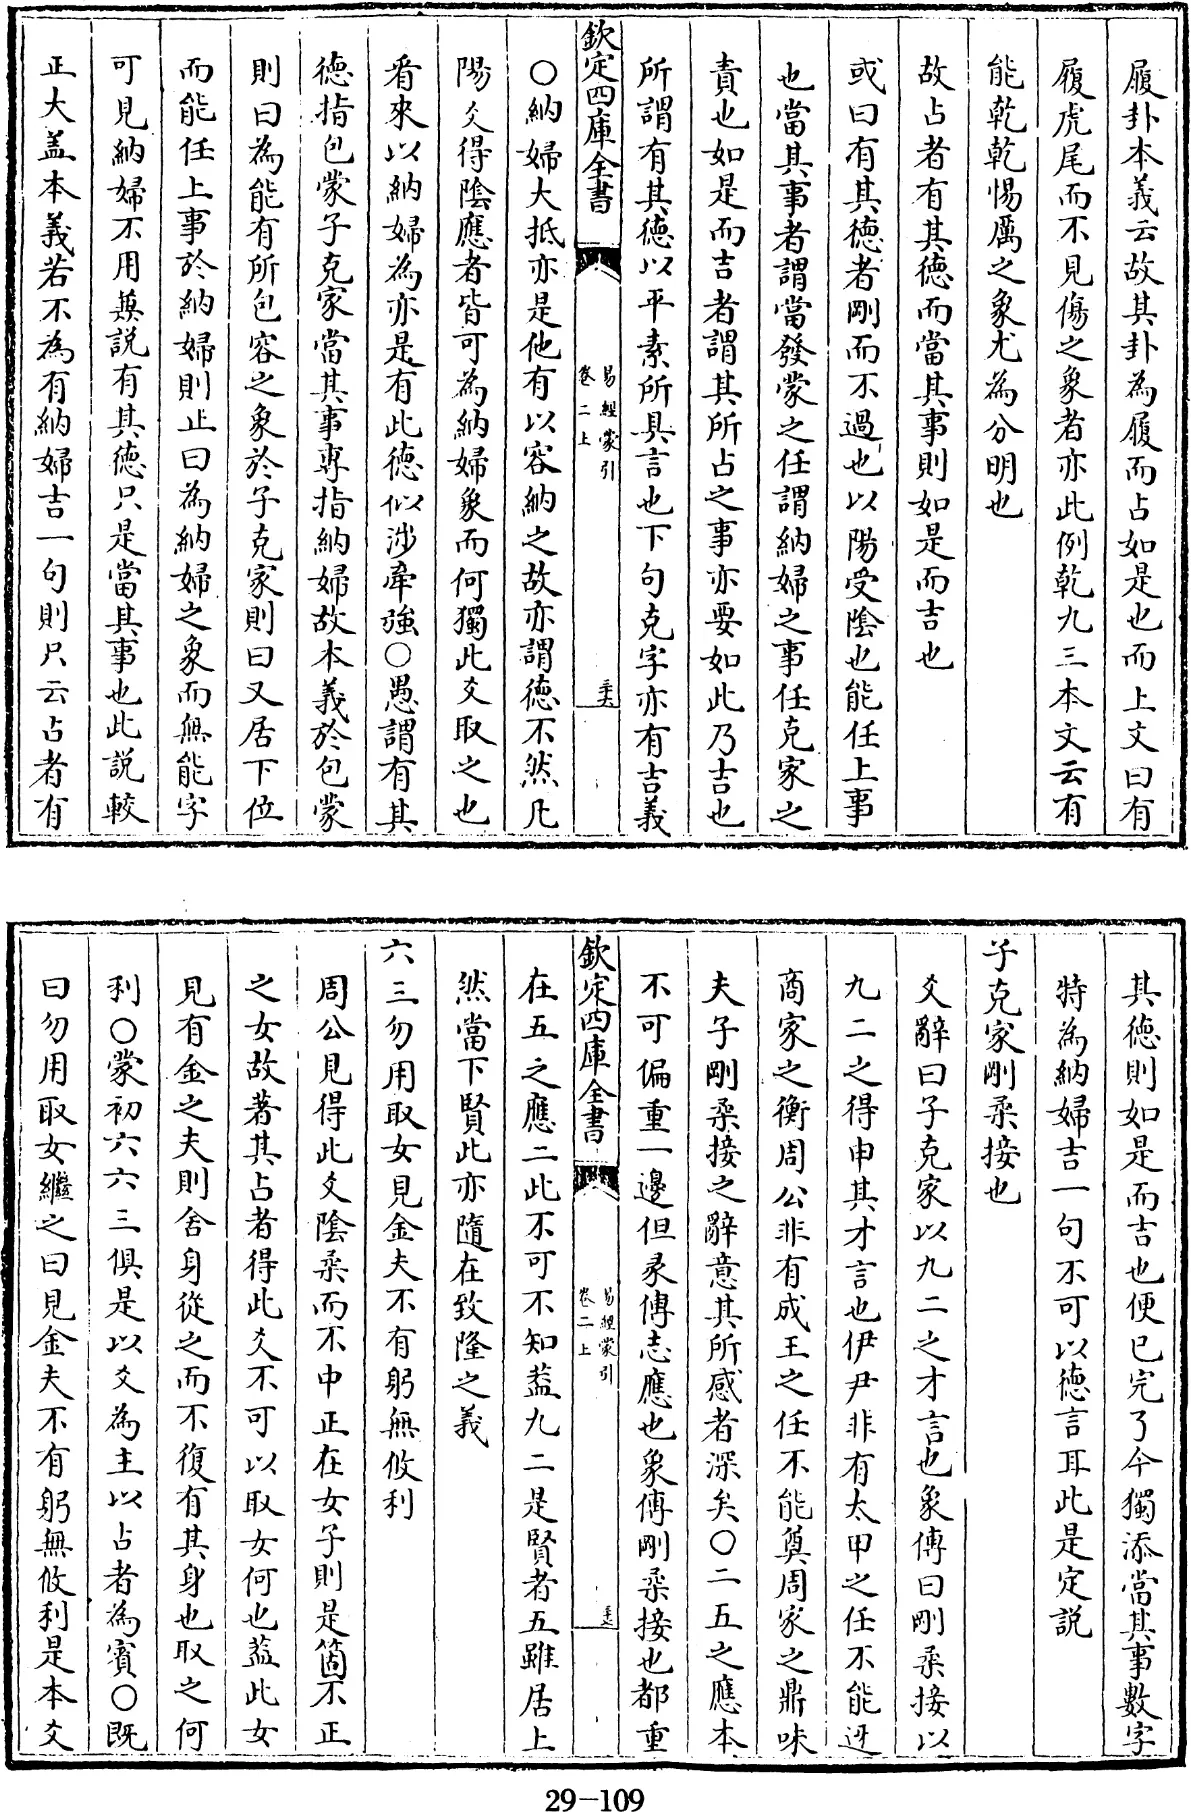 履卦本義云故其卦為履而占如是也而上文曰有
履虎尾而不見傷之象者亦此例乾九三本文云有
能乾乾惕厲之象尤為分明也
故占者有其徳而當其事則如是而吉也
或曰有其徳者剛而不過也以陽受陰也能任上事
也當其事者謂當發蒙之任謂納婦之事任克家之
責也如是而吉者謂其所占之事亦要如此乃吉也
所謂有其徳以平素所具言也下句克字亦有吉義
欽定四庫全書
易經蒙引
卷二上
○納婦大抵亦是他有以容納之故亦謂徳不然凡
陽爻得陰應者皆可為納婦象而何獨此爻取之也
看來以納婦為亦是有此徳似涉牽強○愚謂有其
徳指包蒙子克家當其事專指納婦故本義於包蒙
則曰為能有所包容之象於子克家則曰又居下位
而能任上事於納婦則止曰為納婦之象而無能字
可見納婦不用兼説有其徳只是當其事也此説較
正大盖本義若不為有納婦吉一句則只云占者有
其徳則如是而吉也便已完了今獨添當其事數字
特為納婦吉一句不可以徳言耳此是定説
子克家剛柔接也
爻辭曰子克家以九二之才言也象傳曰剛柔接以
九二之得申其才言也伊尹非有太甲之任不能迓
商家之衡周公非有成王之任不能奠周家之鼎味
夫子剛柔接之辭意其所感者深矣○二五之應本
不可偏重一邊但彖傳志應也象傳剛柔接也都重
欽定四庫全書
易經蒙引
卷二上
在五之應二此不可不知葢九二是賢者五雖居上
然當下賢此亦隨在致隆之義
六三勿用取女見金夫不有躬無攸利
周公見得此爻陰柔而不中正在女子則是箇不正
之女故著其占者得此爻不可以取女何也葢此女
見有金之夫則舍身從之而不復有其身也取之何
利○蒙初六六三俱是以爻為主以占者為賓○既
曰勿用取女繼之曰見金夫不有躬無攸利是本爻
29-109